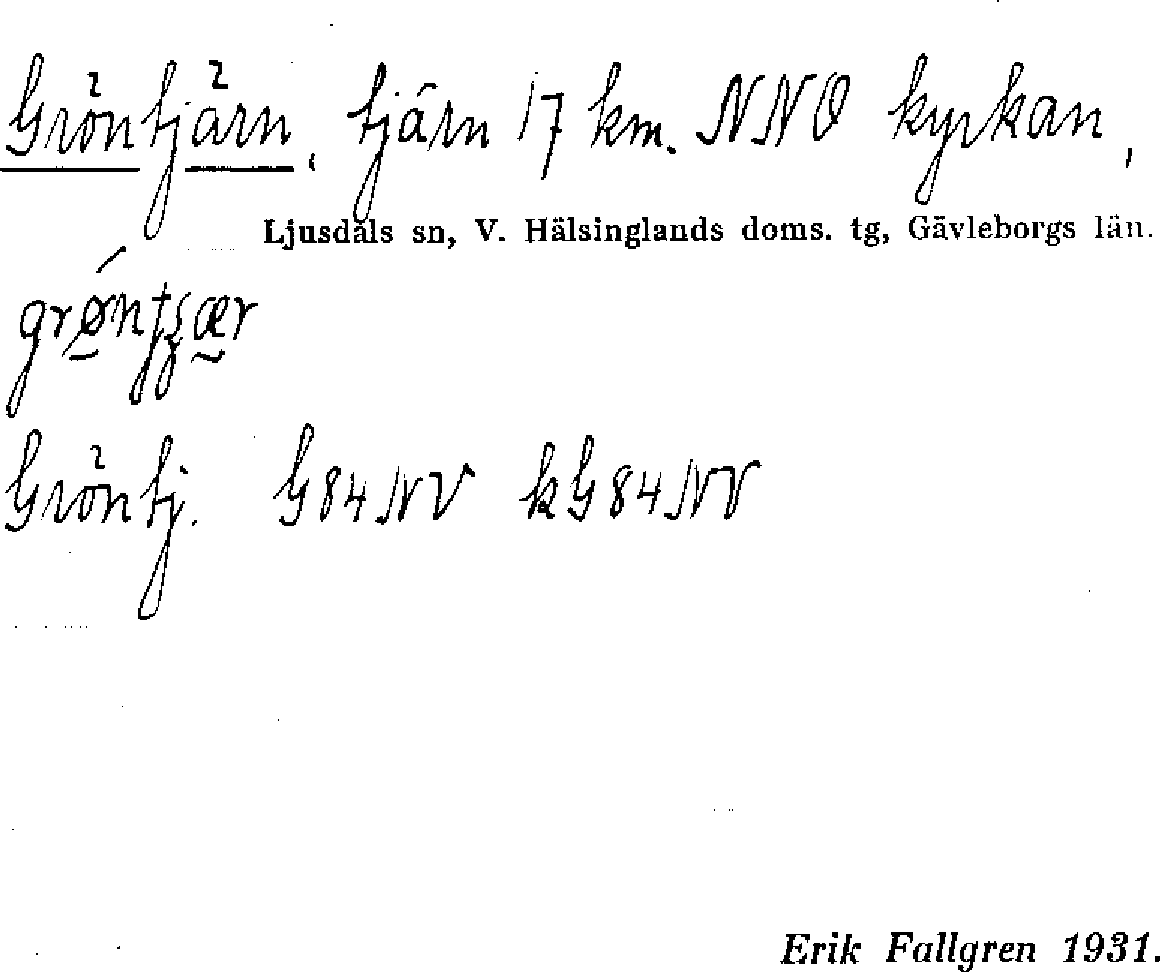 Gröntjärn, tjärn 17 km. NNO kyrkan,
Ljusdals sn, V. Hälsinglands doms. tg, Gävleborgs län.
Gröntj. G84NV kG84NV
Erik Fallgren 1931.